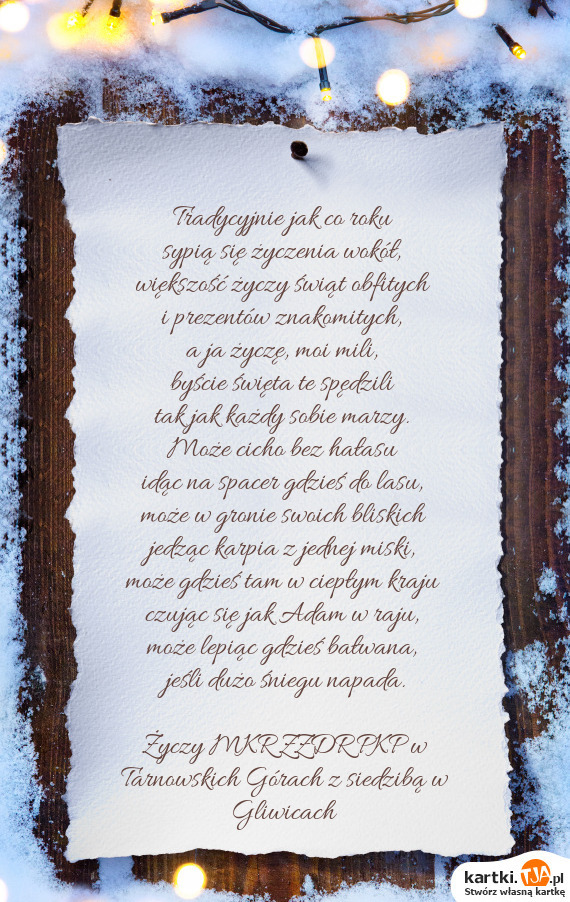 Tradycyjnie jak co roku
sypią się życzenia wokół,
większość życzy świąt obfitych
i prezentów znakomitych,
a ja życzę, moi mili,
byście święta te spędzili
tak jak każdy sobie marzy.
Może cicho bez hałasu
idąc na spacer gdzieś do lasu,
może w gronie swoich bliskich
jedząc karpia z jednej miski,
może gdzieś tam w ciepłym kraju
czując się jak Adam w raju,
może lepiąc gdzieś bałwana,
jeśli dużo śniegu napada.
Życzy MKRZZDRPKP w
Tarnowskich Górach z siedzibą w
Gliwicach
kartki.TJA.pl
Stwórz własną kartkę